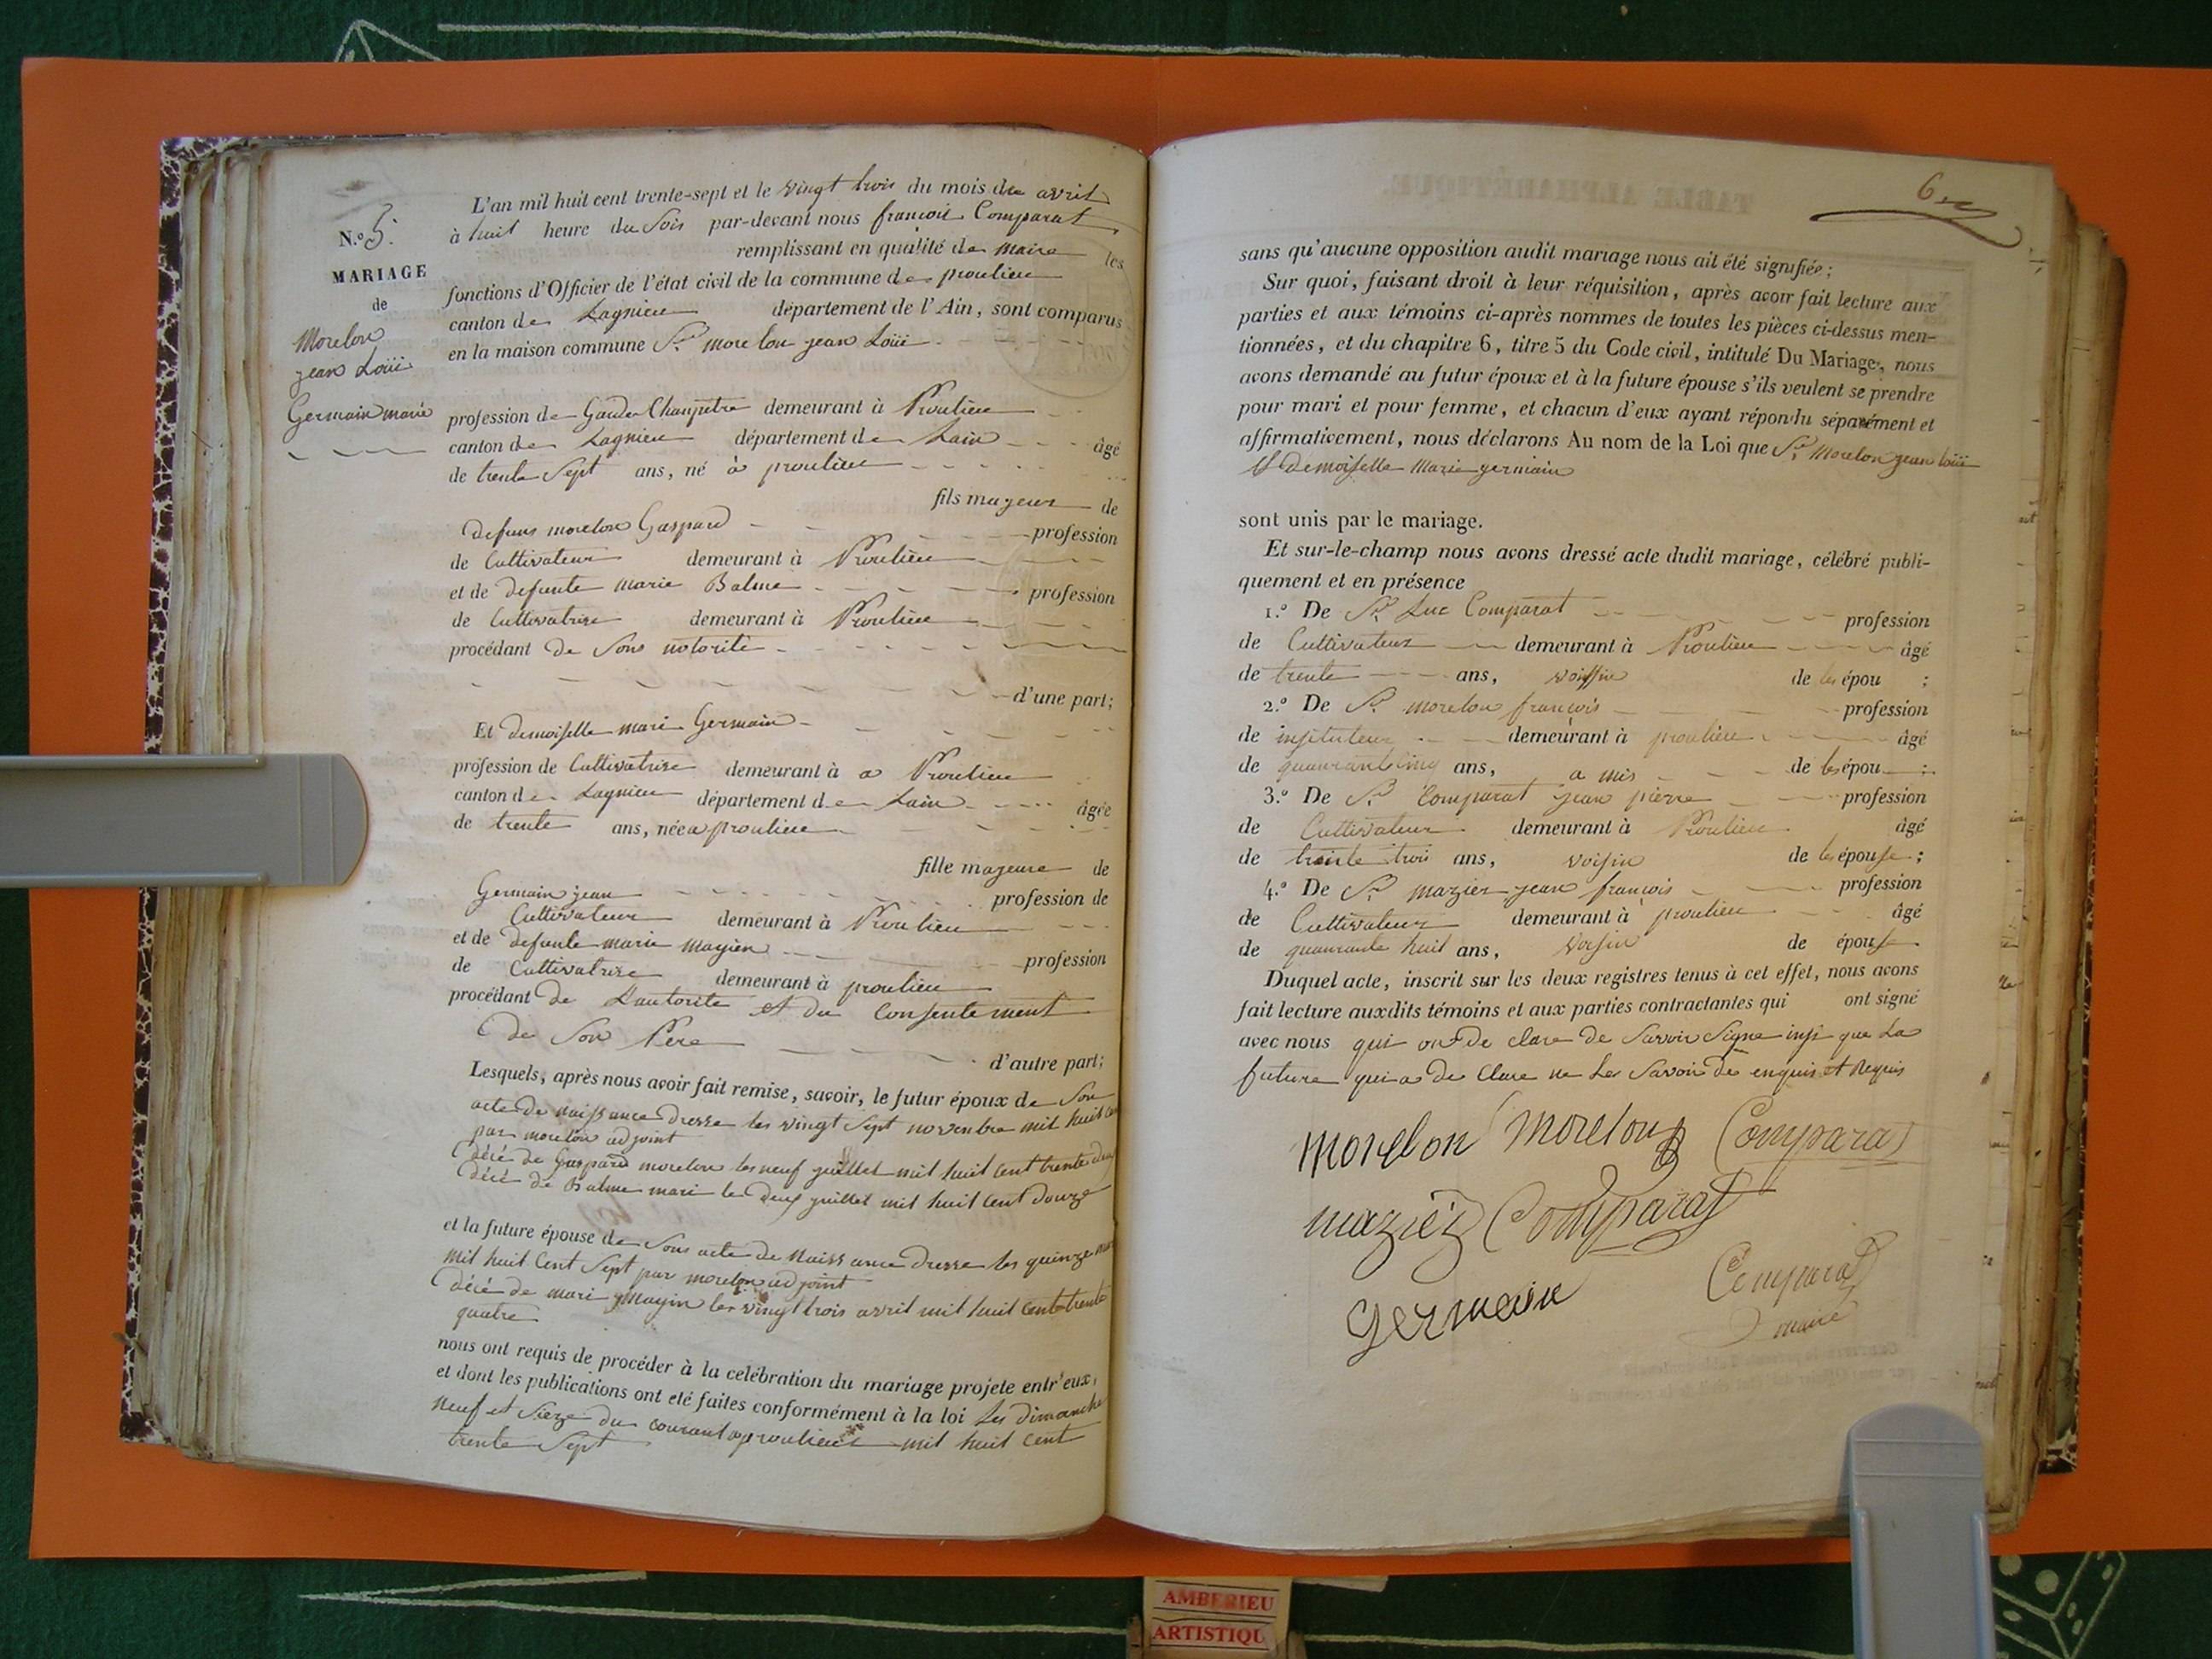 N.º 5.
MARIAGE
de
Morelon
jean Loüi
Germain marie
L'an mil huit cent trente-sept et le vingt trois du mois de avril
à huit heure du Soir par-devant nous françois Comparat
remplissant en qualité de maire les
fonctions d'Officier de l'état civil de la commune de proulieu
canton de Lagnieu département de l'Ain, sont comparus
en la maison commune Sr morelon jean Loüi
profession de Garde Champetre demeurant à Proulieu
canton de Lagnieu département de Lain âgé
de trente Sept ans, né à proulieu
fils majeur de
defuns morelon Gaspard profession
de Cultivateur demeurant à Proulieu
et de defunte marie Balme profession
de Cultivatrise demeurant à Proulieu
procédant de Sons notorité
d'une part;
Et demoiselle mari Germain
profession de Cultivatrise demeurant à a Proulieu
canton de Lagnieu département de Lain âgée
de trente ans, née a proulieu
fille majeure de
Germain jean profession de
Cultivateur demeurant à Proulieu
et de defunte marie mayien profession
de Cultivatrise demeurant à proulieu
procédant de Lautorite et du Consentement
de Son Pere d'autre part;
Lesquels, après nous avoir fait remise, savoir, le futur époux de Son
acte de naissance dresse les vingt Sept novenbre mil huit
par morelon adjoint
décé de Gaspard morelon les neuf juillet mil huit Cent trente
décé de Balme mari le deux juillet mil huit Cent douze
et la future épouse de Sons acte de Naissance dresse les quinze
mil huit Cent Sept par morelon adjoint
décé de mari mayin les vingt trois avril mil huit Cent trente
quatre
nous ont requis de procéder à la celébration du mariage projete entr'eux,
et dont les publications ont eté faites conformément à la loi Les dimanche
neuf et Sieze du courant a proulieu mil huit Cent
trente Sept
6
sans qu'aucune opposition audit mariage nous ait été signifiée;
Sur quoi, faisant droit à leur réquisition, après avoir fait lecture aux
parties et aux témoins ci-après nommes de toutes les pièces ci-dessus men-
tionnées, et du chapitre 6, titre 5 du Code civil, intitulé Du Mariage, nous
avons demandé au futur époux et à la future épouse s'ils veulent se prendre
pour mari et pour femme, et chacun d'eux ayant répondu séparément et
affirmativement, nous déclarons Au nom de la Loi que Sr Morelon jean loüi
et demoiselle Marie germain
sont unis par le mariage.
Et sur-le-champ nous avons dressé acte dudit mariage, célébré publi-
quement et en présence
1.º De Sr Luc Comparat profession
de Cultivateur demeurant à Proulieu âgé
de trente ans, voissin de les épou ;
2.º De Sr morelon françois profession
de instituteur demeurant à proulieu âgé
de quaurantcinq ans, a mis de les épou ;
3.º De Sr Comparat jean pierre profession
de Cultivateur demeurant à Proulieu âgé
de trente trois ans, voisin de les épouse ;
4.º De Sr mazier jean françois profession
de Cultivateur demeurant à proulieu âgé
de quaurante huit ans, voisin de épouse
Duquel acte, inscrit sur les deux registres tenus à cet effet, nous avons
fait lecture auxdits témoins et aux parties contractantes qui ont signé
avec nous qui on de clare de Savoir Signe insi que La
future qui a de Clare ne Les Savoir de enquis et Requis
morelon Morelon Compara
maziez Comparat
germain
Comparat
maire
AMBERIEU
ARTISTIQU